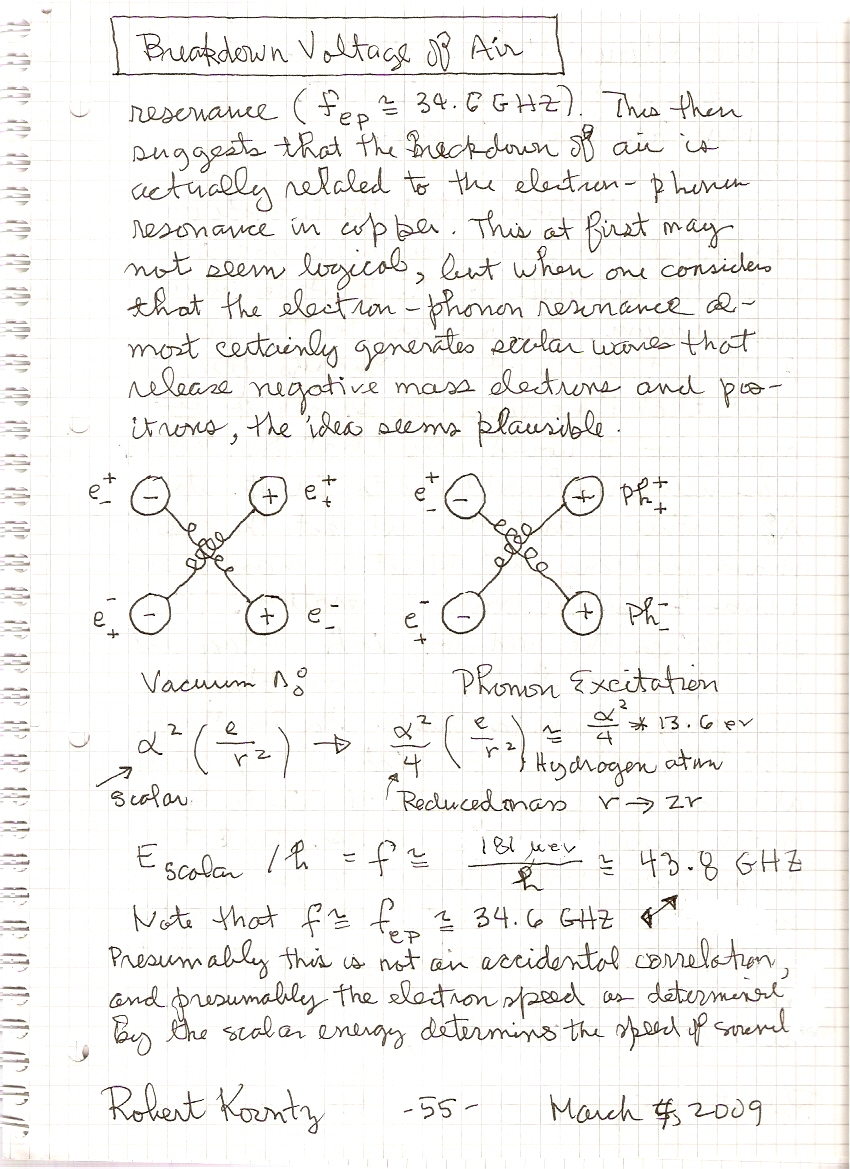 Breakdown Voltage of Air
resonance ( f_ep ≅ 34.6 GHZ). This then
suggests that the Breakdown of air is
actually related to the electron-phonon
resonance in copper. This at first may
not seem logical, but when one considers
that the electron-phonon resonance al-
most certainly generates scalar waves that
release negative mass electrons and pos-
itrons, the idea seems plausible.
e⁺₋ − + e⁺₊ e⁺₋ − + Ph⁺₊
e⁻₊ − + e⁻₋ e⁻₊ − + Ph⁻₋
Vacuum Λ⁰₀ Phonon Excitation
α² (e/r²) → α²/4 (e/r²) ≅ α²/4 * 13.6 ev
Hydrogen atom
scalar Reduced mass r → 2r
E scalar / ħ = f ≅ 181 μev / ħ ≅ 43.8 GHZ
Note that f ≅ f_ep ≅ 34.6 GHZ
Presumably this is not an accidental correlation,
and presumably the electron speed as determined
By the scalar energy determins the speed of sound
Robert -55- March 2009